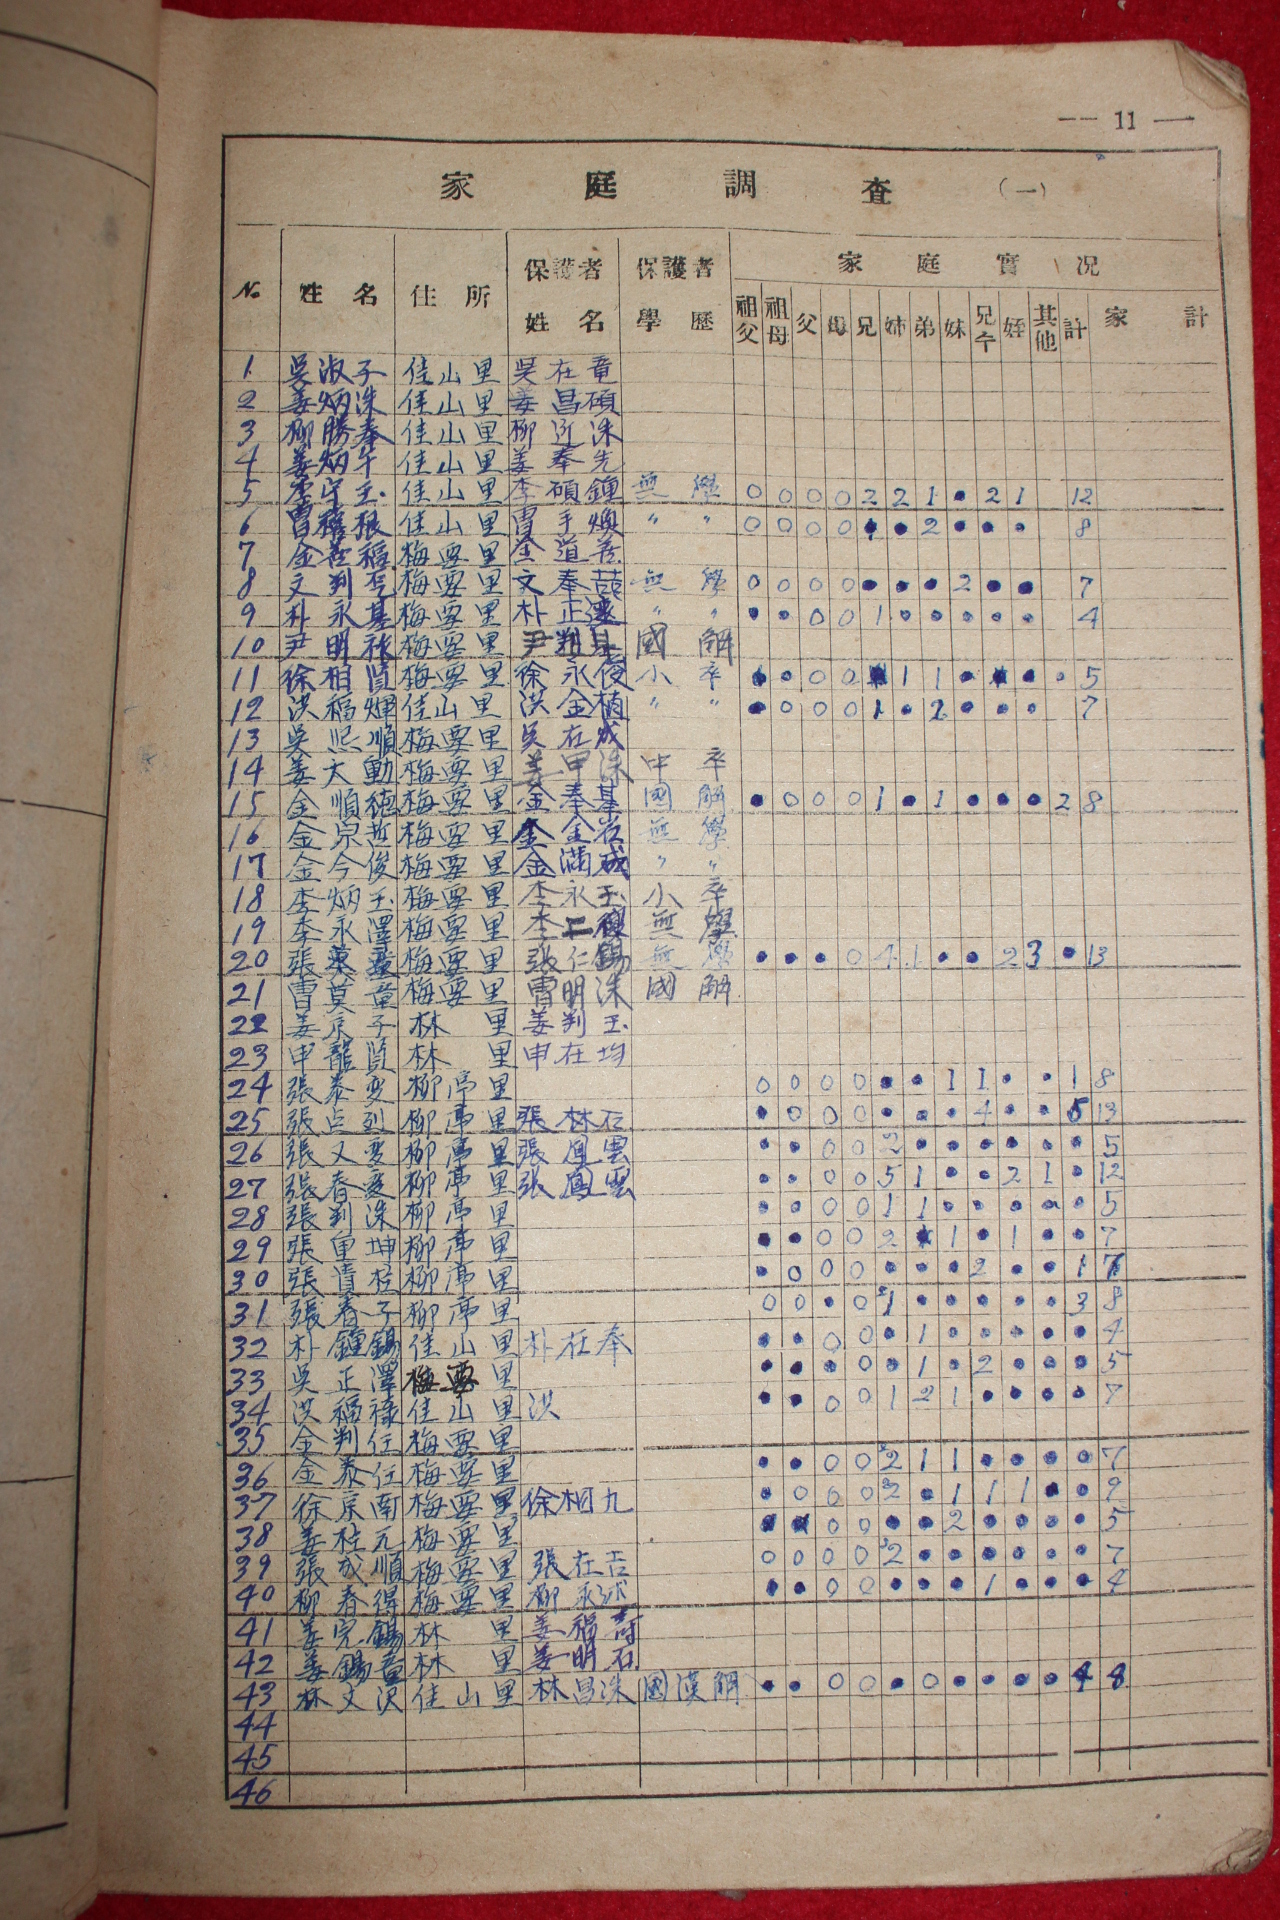 — 11 —
家庭調査 (一)
№ 姓名 住所 保護者姓名 保護者學歷 家庭實況 家計
祖父 祖母 父 母 兄 姉 弟 妹 兄수 姪 其他 計
1 吳淑子 佳山里 吳在竜
2 姜炳洙 佳山里 姜昌碩
3 柳勝奉 佳山里 柳近洙
4 姜炳午 佳山里 姜奉先
5 李守玉 佳山里 李碩鍾 無學 ○ ○ ○ ○ 2 2 1 • 2 1 12
6 曺 根 佳山里 曺手煥 〃 〃 ○ ○ ○ ○ • • 2 • • • 8
7 金 福 梅要里 金道
8 文判 梅要里 文奉喆 無學 ○ ○ ○ ○ • • • 2 • • 7
9 朴永基 梅要里 朴正 〃 〃 • • ○ ○ 1 • • • • • 4
10 尹明 梅要里 尹判基 國解
11 徐相賢 梅要里 徐永俊 小卒 • • ○ ○ • 1 1 • • • • 5
12 洪福煇 佳山里 洪金植 〃 〃 • ○ ○ ○ 1 • 2 • • • 7
13 吳熙順 梅要里 吳在成
14 姜大動 梅要里 姜甲洙 中卒
15 金順德 梅要里 金奉基 國解 • ○ ○ ○ 1 • 1 • • • 2 8
16 金宗哲 梅要里 金金岩 無學
17 金今俊 梅要里 金滿成 〃 〃
18 李炳玉 梅要里 李永玉 小卒
19 李永澤 梅要里 李二 無學
20 張 竜 梅要里 張仁錫 無學 • • • ○ 4 1 • • 2 3 • 13
21 曺莫童 梅要里 曺明洙 國解
22 姜京子 林里 姜判玉
23 申龍賢 林里 申在均
24 張泰変 柳亭里 ○ ○ ○ ○ • • 1 1 • • 1 8
25 張占烈 柳亭里 張林石 • ○ ○ ○ • • • 4 • • 5 13
26 張又変 柳亭里 張鳳雲 • • ○ ○ 2 • • • • • • 5
27 張春変 柳亭里 張鳳雲 • • ○ ○ 5 1 • • 2 1 • 12
28 張判洙 柳亭里 • • ○ ○ 1 1 • • • • • 5
29 張 坤 柳亭里 • • ○ ○ 2 • 1 • 1 • • 7
30 張 柱 柳亭里 • ○ ○ ○ • • • 2 • • 1 7
31 張春子 柳亭里 ○ ○ • ○ 1 • • • • • 3 8
32 朴鍾錫 佳山里 朴在奉 • • ○ ○ • 1 • • • • • 4
33 吳正澤 梅要里 • • • ○ • 1 • 2 • • • 5
34 洪福禄 佳山里 洪 • • ○ ○ 1 2 1 • • • • 7
35 金判任 梅要里
36 金泰任 梅要里 • • ○ ○ 2 1 1 • • • • 7
37 徐京南 梅要里 徐相九 • ○ ○ ○ 2 • 1 1 1 • • 9
38 姜柱元 梅要里 • • ○ ○ • • 2 • • • • 5
39 張成順 梅要里 張在吉 ○ ○ ○ ○ 2 • • • • • • 7
40 柳春得 梅要里 柳永 • • ○ ○ • • • 1 • • • 4
41 姜完錫 林里 姜福
42 姜錫竜 林里 姜明石
43 林文沢 佳山里 林昌洙 國漢解 • • ○ ○ • ○ • • • • 4 8
44
45
46